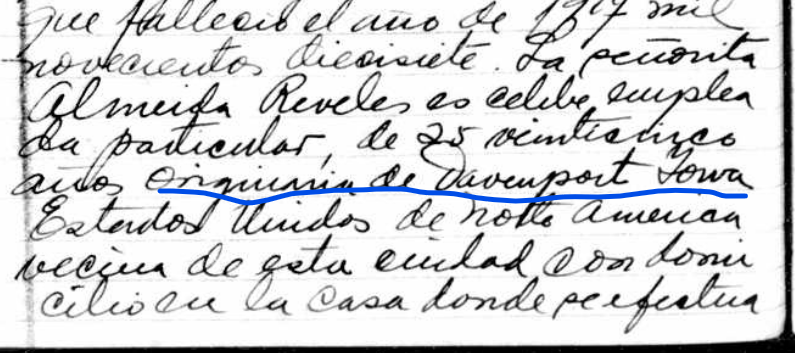 que falleció el año de 1917 mil
novecientos diecisiete. La señorita
Almeida Reveles es celibe, emplea
da particular, de 25 veinticinco
años originaria de Davenport Iowa
Estados Unidos de Norte America
vecina de esta ciudad con domi
cilio en la casa donde se efectua